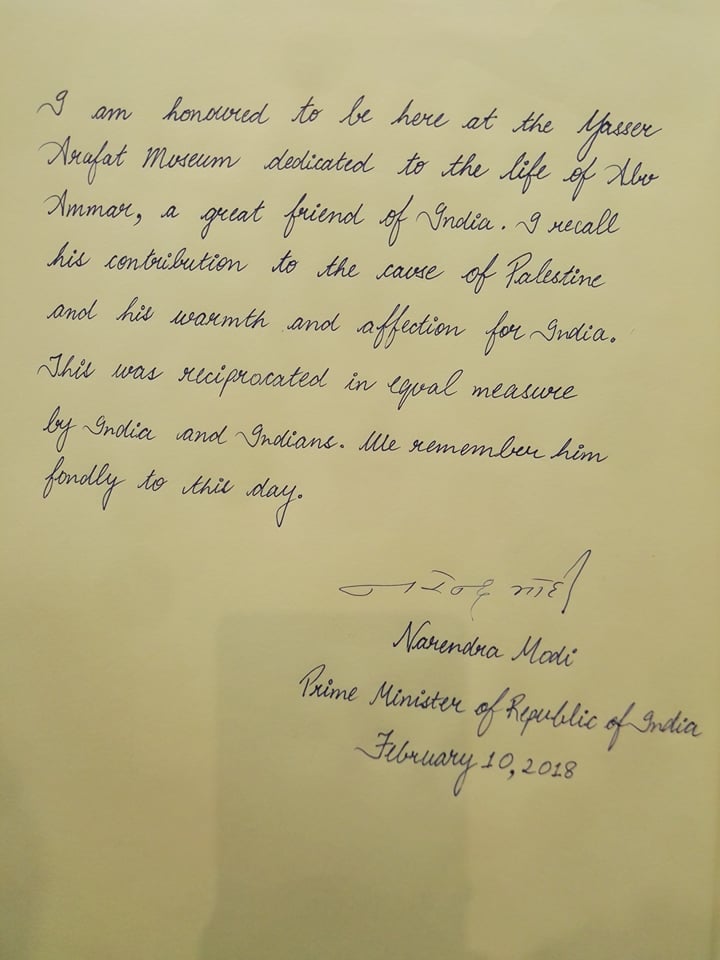 I am honoured to be here at the Yasser
Arafat Museum dedicated to the life of Abu
Ammar, a great friend of India. I recall
his contribution to the cause of Palestine
and his warmth and affection for India.
This was reciprocated in equal measure
by India and Indians. We remember him
fondly to this day.
नरेन्द्र मोदी
Narendra Modi
Prime Minister of Republic of India
February 10, 2018